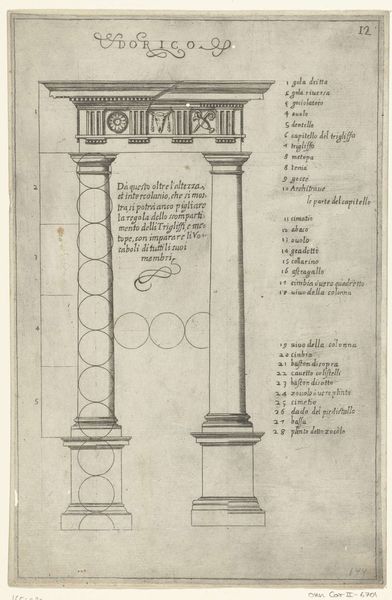 12
DORICO
1 gola dritta
2 gola riversa
3 gociolatoio
4 ovolo
5 dentello
6 capitello del trigliffo
7 trigliffo
8 metopa
9 tenia
9 gocce
10 Architrave
le parte del capitello
11 cimatio
12 abaco
13 ovolo
14 gradetti
15 collarino
16 astragallo
17 cimbia overo quadretto
18 vivo della colonna
1
2
3
4
5
Da questo oltre l'altezza,
et intercolunio, che si mos-
tra si potrà anco pigliare
la regola dello scomparti-
mento delli Trigliffi, e me-
tope, con imparare li Vo-
caboli di tutti li suoi
membri
19 vivo della colonna
20 cimbia
21 baston di sopra
22 cavetto colistelli
23 baston di sotto
24 zocolo overo plinto
25 cimatio
26 dado del piedistallo
27 bassa
28 plinto detto zocolo
144